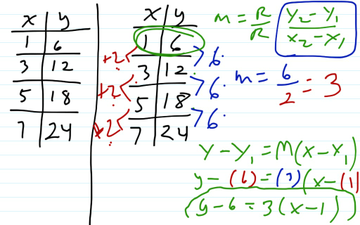 x y
1 6
3 12
5 18
7 24
x y
1 6
3 12
5 18
7 24
+2
+2
+2
6
6
6
m = R/R
y₂ - y₁
x₂ - x₁
m = 6/2 = 3
y - y₁ = m(x - x₁)
y - (6) = (3)(x - (1)
y - 6 = 3(x - 1)